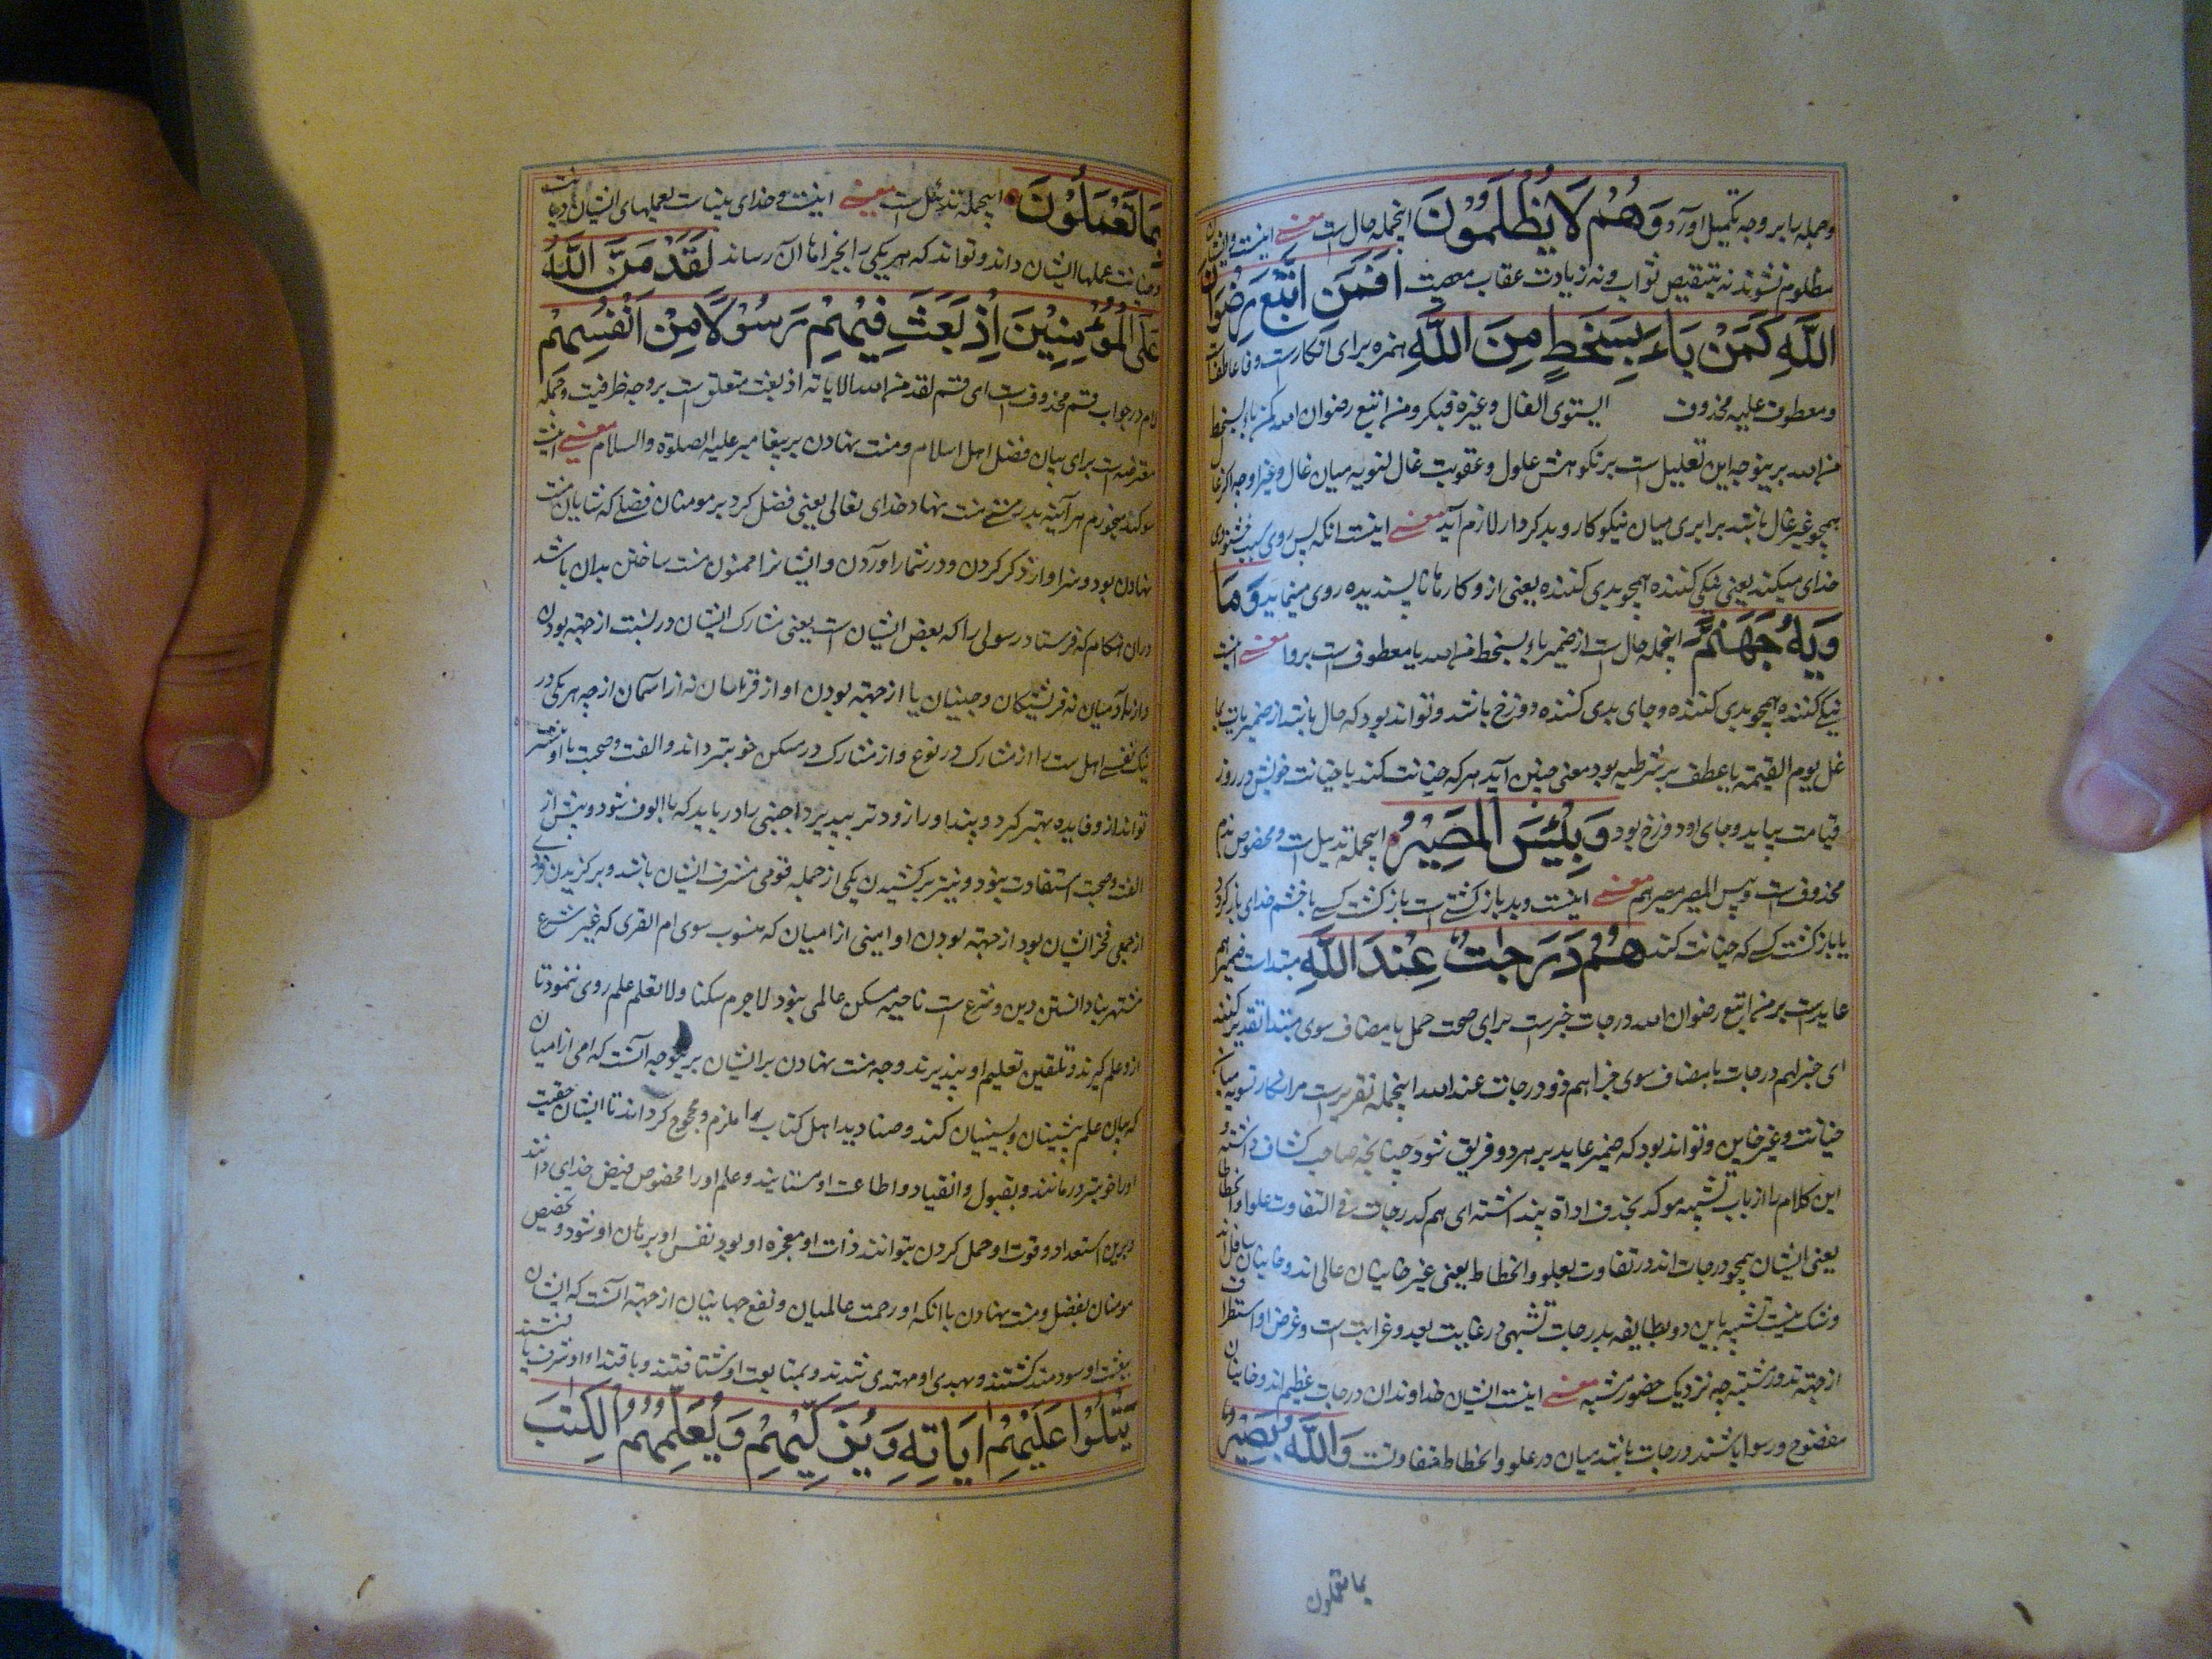 وجمله را بر وجه تکمیل آورد وَهُمْ لَا يُظْلَمُونَ اینجمله حال است معنے اینست و ایشان
مظلوم نشوند نه بتنقیص ثواب و نه زیادت عقاب معصیت اَفَمَنِ اتَّبَعَ رِضْوَانَ
اللَّهِ كَمَنْ بَاءَ بِسَخَطٍ مِنَ اللَّهِ همزه برای انکار است و فا عاطفه است
ومعطوف علیه محذوف ایستوی الغال وغیره فیکون من اتبع رضوان الله کمن باء بسخط
من الله برینوجه این تعلیل است بر نکوهش غلول و عقوبت غال لتویه میان غال و غیر او چه اگر غال
همچو غیر غال باشد برابری میان نیکوکار و بدکردار لازم آید معنے اینست انکه پس روی سبب خشنودی
خدای میکند یعنی نیکی کننده همچو بدی کننده یعنی از و کارها ناپسندیده روی مینماید وَمَا
وٰيهُ جَهَنَّمُ اینجمله حال است از ضمیر باء بسخط من الله یا معطوف است بروا معنے اینست
نیکی کننده همچو بدی کننده و جای بدی کننده دوزخ باشد و تواند بود که حال باشد از ضمیر یات بما
غل یوم القیمة یا عطف بر شرطیه بود معنی چنین آید هر که خیانت کند با خیانت خویش در روز
قیامت بیاید و جای او دوزخ بود وَبِئْسَ الْمَصِيْرُ اینجمله تذییل است و مخصوص بذم
محذوف است وبئس المصیر مصیرهم معنے اینست و بد بازگشتی است بازگشت کسے با خشم خدای بازگردد
یا بازگشت کسے که خیانت کند هُمْ دَرَجٰتٌ عِنْدَ اللَّهِ مبتدا است ضمیر هم
عاید است بر من اتبع رضوان الله درجات خبر است برای صحت حمل یا مضاف سوی مبتدا تقدیر کنند
ای خبر لهم درجات یا مضاف سوی خبر ای هم ذو درجات عند الله اینجمله تقریر است مر انکار تسویه میان
خیانت و غیر خاین و تواند بود که ضمیر عاید بر هر دو فریق شود چنانچه صاحب کشاف داشته و
این کلام را از باب تشبیه موکد بحذف اداة پنداشته ای هم کدرجات فی التفاوت علوا وانحطاطا
یعنی ایشان همچو درجات اند در تفاوت بعلو و انحطاط یعنی غیر خاینان عالی اند و خاینان سافل اند
وشک نیست تشبیه باین دو طایفه بدرجات تشبهی در غایت بعد و غرابت است و غرض او استطراف
از جهته ندور مشبه به نزدیک حضور مشبه معنے اینست ایشان خداوندان درجات عظیم اند و خاینان
مفضوح و رسوا باشند درجات باشد میان در علو و انحطاط متفاوتست وَاللَّهُ بَصِيْرٌ
بما تعملون
بِمَا تَعْمَلُوْنَ اینجمله تذییل است معنے اینست و خدای بیناست بعملهای ایشان دیانت
و خیانت عملها ایشان داند و تواند که هر یکی را بجزاها آن رساند لَقَدْ مَنَّ اللَّهُ
عَلَى الْمُؤْمِنِيْنَ اِذْ بَعَثَ فِيْهِمْ رَسُوْلًا مِنْ اَنْفُسِهِمْ
لام در جواب قسم محذوف است ای قسم لقد من الله الایاته اذ بعث متعلق است بر وجه ظرفیت و جمله
معترضه است برای بیان فضل اهل اسلام و منت نهادن بر پیغامبر علیه الصلوة والسلام معنے اینست
سوگند میخورم هر آینه بدرستی منت نهاد خدای تعالی یعنی فضل کرد بر مومنان فضلے که شایان منت
نهادن بود و سزاوار ذکر کردن و در شمار آوردن و ایشانرا ممنون منت ساختن بدان باشد
دران هنگام که فرستاد رسولی را که بعض ایشان است یعنی مشارک ایشان در نسبت از جهته بودن
او از آدمیان نه فرشتگان و جنیان یا از جهته بودن او از قریشان نه از آسمان از چه هر یکی در
یک نفس اهل است را از مشارک در نوع و از مشارک در مسکن خوبتر داند و الفت و صحبت با او بیشتر
تواند از و فایده بهتر گیرد و پند او را زودتر بپذیرد اجنبی را در باید که تا الوف شود و پیش از
الفت و صحبت استفادت بنود و نیز برکشیدن یکی از جمله قومی مشرف ایشان باشد و برگزیدن فردی
از جمعی فخر ایشان بود از جهته بودن او امینی از امیان که منسوب سوی ام القری که غیر شرع
مشتهر بنا دانستن دین و شرع است ناحیه مسکن عالمی بنود لاجرم سکنا و لا تعلم علم روی ننمود تا
از و علم گیرند و تلقین تعلیم او بپذیرند وجه منت نهادن بر ایشان برینوجه آنست که امی از امیان
که بیان علم پیشینیان و پسینیان کند و صنادید اهل کتاب را ملزم و محجوج گرداند تا ایشان حقیت
او را خوبتر در مانند و بقبول و انقیاد و اطاعت او شتابند و علم او را مخصوص فیض خدای دانند
و برین استعداد و قوت او حمل کردن بتوانند ذات او معجزه او بود نفس او برهان او شود و تخصیص
مومنان بفضل و منت نهادن با آنکه او رحمت عالمیان و نفع جهانیان از جهته آنست که ایشان
ببعثت او سودمند گشتند و بهدی او مهتدی شدند و بمتابعت او شتافتند و باقتداء او شرف یافتند
يَتْلُوْا عَلَيْهِمْ اٰيَاتِهٖ وَيُزَكِّيْهِمْ وَيُعَلِّمُهُمُ الْكِتٰبَ